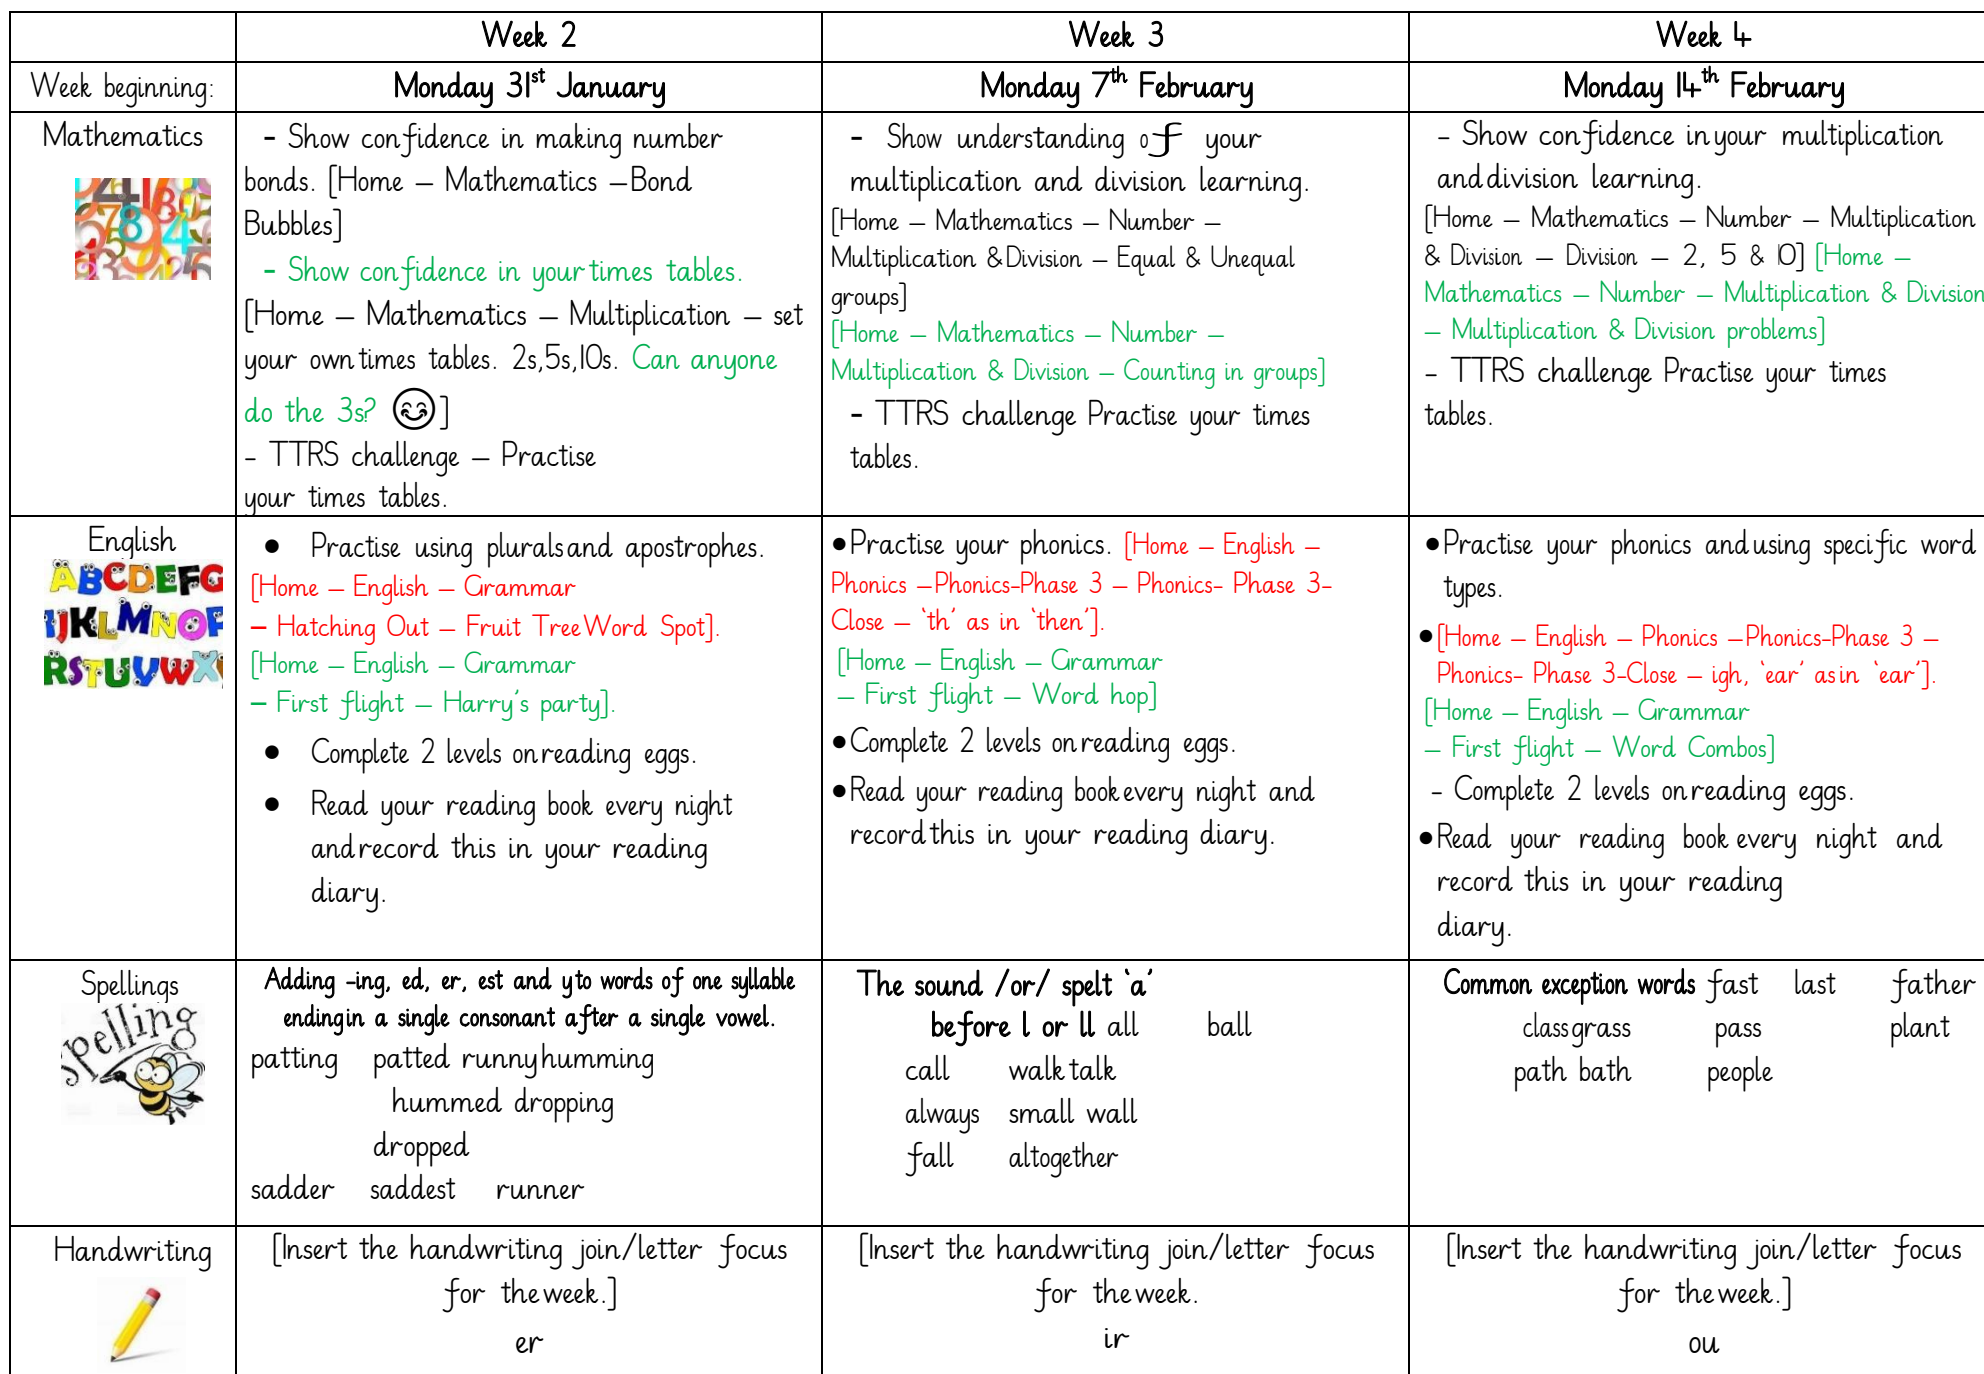 Week 2
Week 3
Week 4
Week beginning:
Monday 31st January
Monday 7th February
Monday 14th February
Mathematics
- Show confidence in making number
bonds. [Home – Mathematics –Bond
Bubbles]
- Show confidence in your times tables.
[Home – Mathematics – Multiplication – set
your own times tables. 2s,5s,10s. Can anyone
do the 3s? 😊]
- TTRS challenge – Practise
your times tables.
- Show understanding of your
multiplication and division learning.
[Home – Mathematics – Number –
Multiplication & Division – Equal & Unequal
groups]
[Home – Mathematics – Number –
Multiplication & Division – Counting in groups]
- TTRS challenge Practise your times
tables.
- Show confidence in your multiplication
and division learning.
[Home – Mathematics – Number – Multiplication
& Division – Division – 2, 5 & 10] [Home –
Mathematics – Number – Multiplication & Division
– Multiplication & Division problems]
- TTRS challenge Practise your times
tables.
English
ABCDEFG
IJKLMNOP
RSTUVWX
● Practise using plurals and apostrophes.
[Home – English – Grammar
– Hatching Out – Fruit Tree Word Spot].
[Home – English – Grammar
– First flight – Harry's party].
● Complete 2 levels on reading eggs.
● Read your reading book every night
and record this in your reading
diary.
● Practise your phonics. [Home – English –
Phonics –Phonics-Phase 3 – Phonics- Phase 3-
Close – 'th' as in 'then'].
[Home – English – Grammar
– First flight – Word hop]
● Complete 2 levels on reading eggs.
● Read your reading book every night and
record this in your reading diary.
● Practise your phonics and using specific word
types.
● [Home – English – Phonics –Phonics-Phase 3 –
Phonics- Phase 3-Close – igh, 'ear' as in 'ear'].
[Home – English – Grammar
– First flight – Word Combos]
- Complete 2 levels on reading eggs.
● Read your reading book every night and
record this in your reading
diary.
Spellings
Spelling
Adding -ing, ed, er, est and y to words of one syllable
ending in a single consonant after a single vowel.
patting patted runny humming
hummed dropping
dropped
sadder saddest runner
The sound /or/ spelt 'a'
before l or ll all ball
call walk talk
always small wall
fall altogether
Common exception words fast last father
class grass pass plant
path bath people
Handwriting
[Insert the handwriting join/letter focus
for the week.]
er
[Insert the handwriting join/letter focus
for the week.
ir
[Insert the handwriting join/letter focus
for the week.]
ou